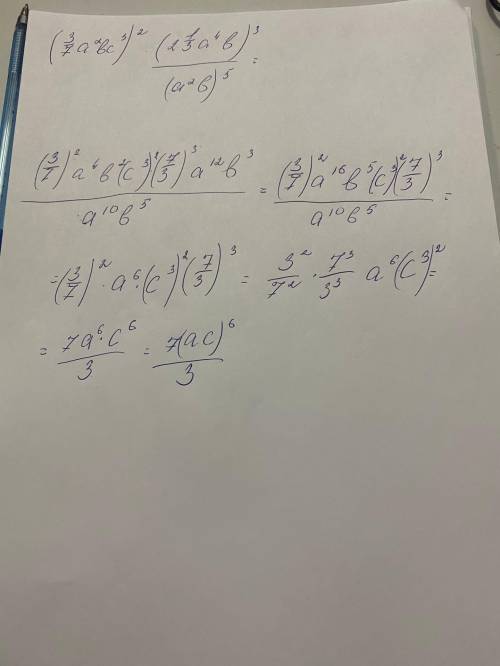 (3/7 a²bc³)² · (2 1/3 a⁴b)³ / (a²b)⁵ =
(3/7)² a⁴b²(c³)²(7/3)³ a¹²b³ / a¹⁰b⁵ = (3/7)² a¹⁶b⁵(c³)²(7/3)³ / a¹⁰b⁵ =
= (3/7)² · a⁶ · (c³)² (7/3)³ = 3²/7² · 7³/3³ a⁶(c³)² =
= 7a⁶ · c⁶ / 3 = 7(ac)⁶ / 3